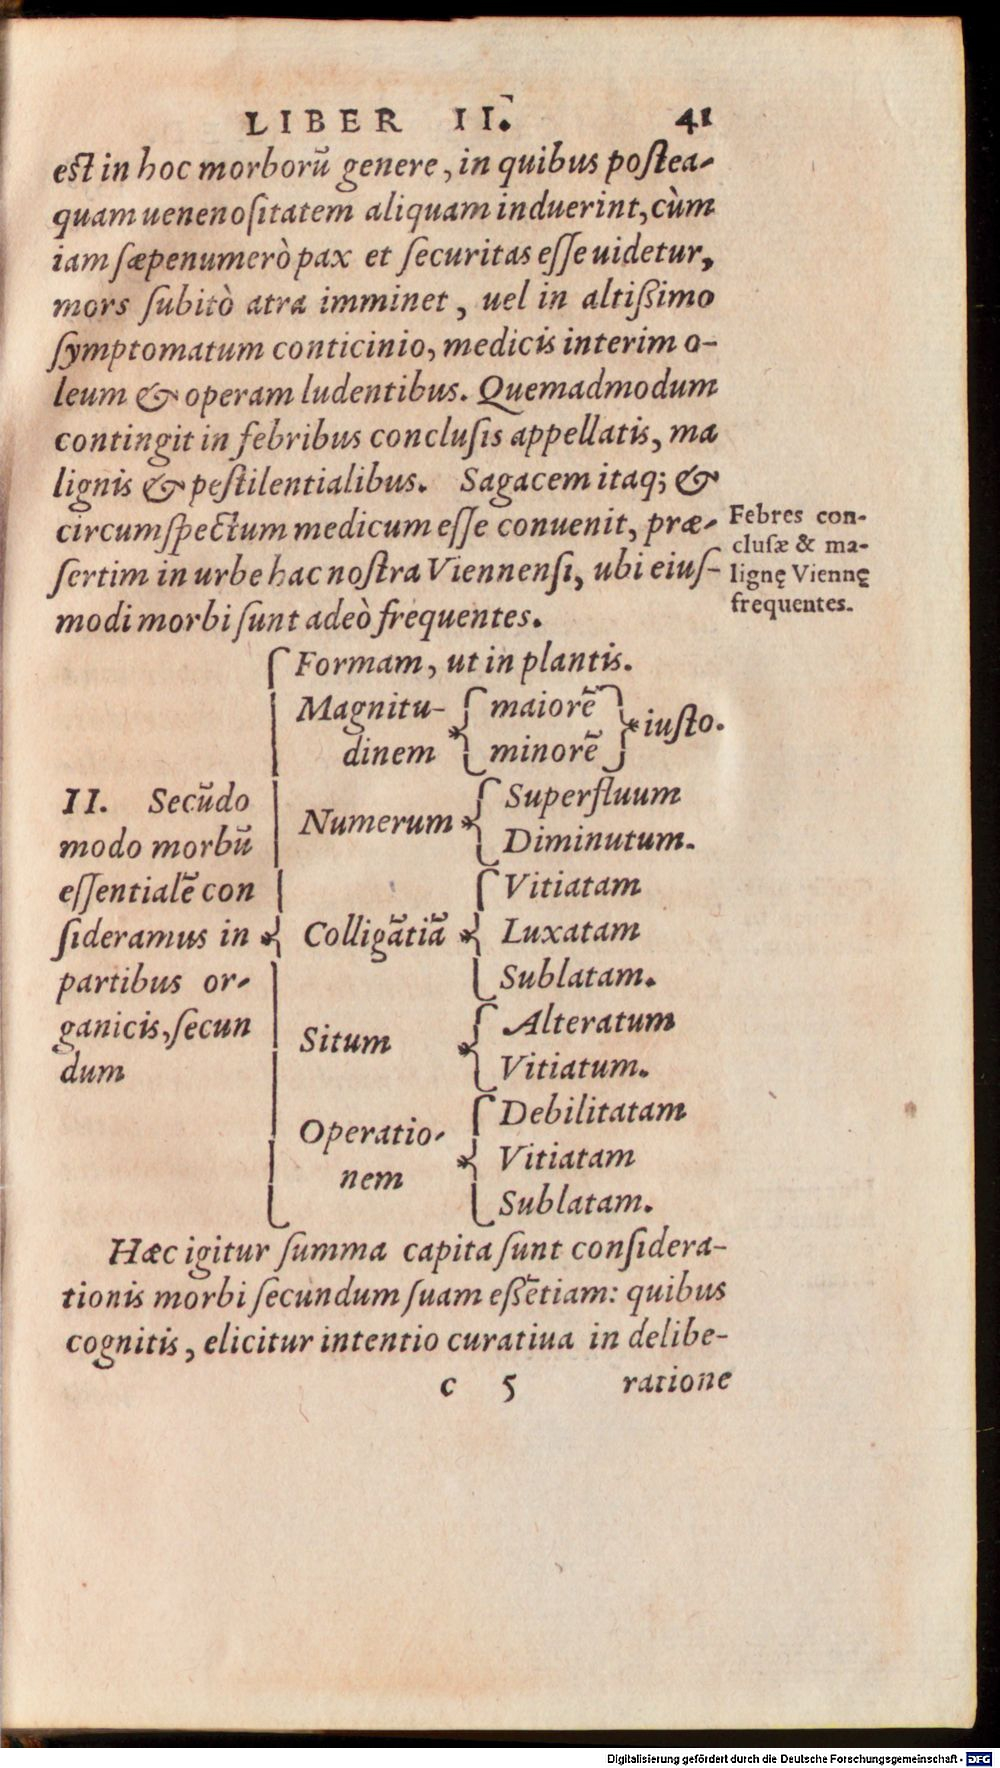 LIBER II. 41
est in hoc morborũ genere, in quibus postea-
quam uenenoſitatem aliquam induerint, cùm
iam ſæpenumerò pax et ſecuritas eſſe uidetur,
mors ſubitò atra imminet, uel in altiſsimo
ſymptomatum conticinio, medicis interim o-
leum & operam ludentibus. Quemadmodum
contingit in febribus concluſis appellatis, ma
lignis & peſtilentialibus. Sagacem itaq; &
circumſpectum medicum eſſe conuenit, præ-
ſertim in urbe hac noſtra Viennenſi, ubi eiuſ-
modi morbi ſunt adeò frequentes.
Febres con-
cluſæ & ma-
lignę Viennę
frequentes.
II. Secũdo
modo morbũ
eſſentialẽ con
ſideramus in
partibus or-
ganicis, ſecun
dum
Formam, ut in plantis.
Magnitu-
dinem
maiorẽ
minorẽ
iuſto.
Numerum
Superfluum
Diminutum.
Colligãtiã
Vitiatam
Luxatam
Sublatam.
Situm
Alteratum
Vitiatum.
Operatio-
nem
Debilitatam
Vitiatam
Sublatam.
Hæc igitur ſumma capita ſunt conſidera-
tionis morbi ſecundum ſuam eſsẽtiam: quibus
cognitis, elicitur intentio curatiua in delibe-
c 5 ratione
Digitalisierung gefördert durch die Deutsche Forschungsgemeinschaft - DFG